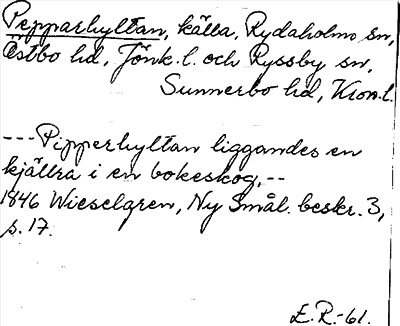 Pepparhyltan, källa, Rydaholm sn,
Östbo hd, Jönk. l. och Ryssby sn,
Sunnerbo hd, Kron. l.
---Pipperhyltan liggandes en
kjällra i en bokeskog,--
1846 Wieselgren, Ny Smål. beskr. 3,
s. 17.
E.R.-61.